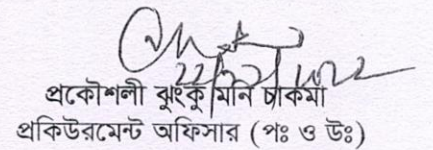 প্রকৌশলী ঝুংকু মনি চাকমা
প্রকিউরমেন্ট অফিসার (পঃ ও উঃ)